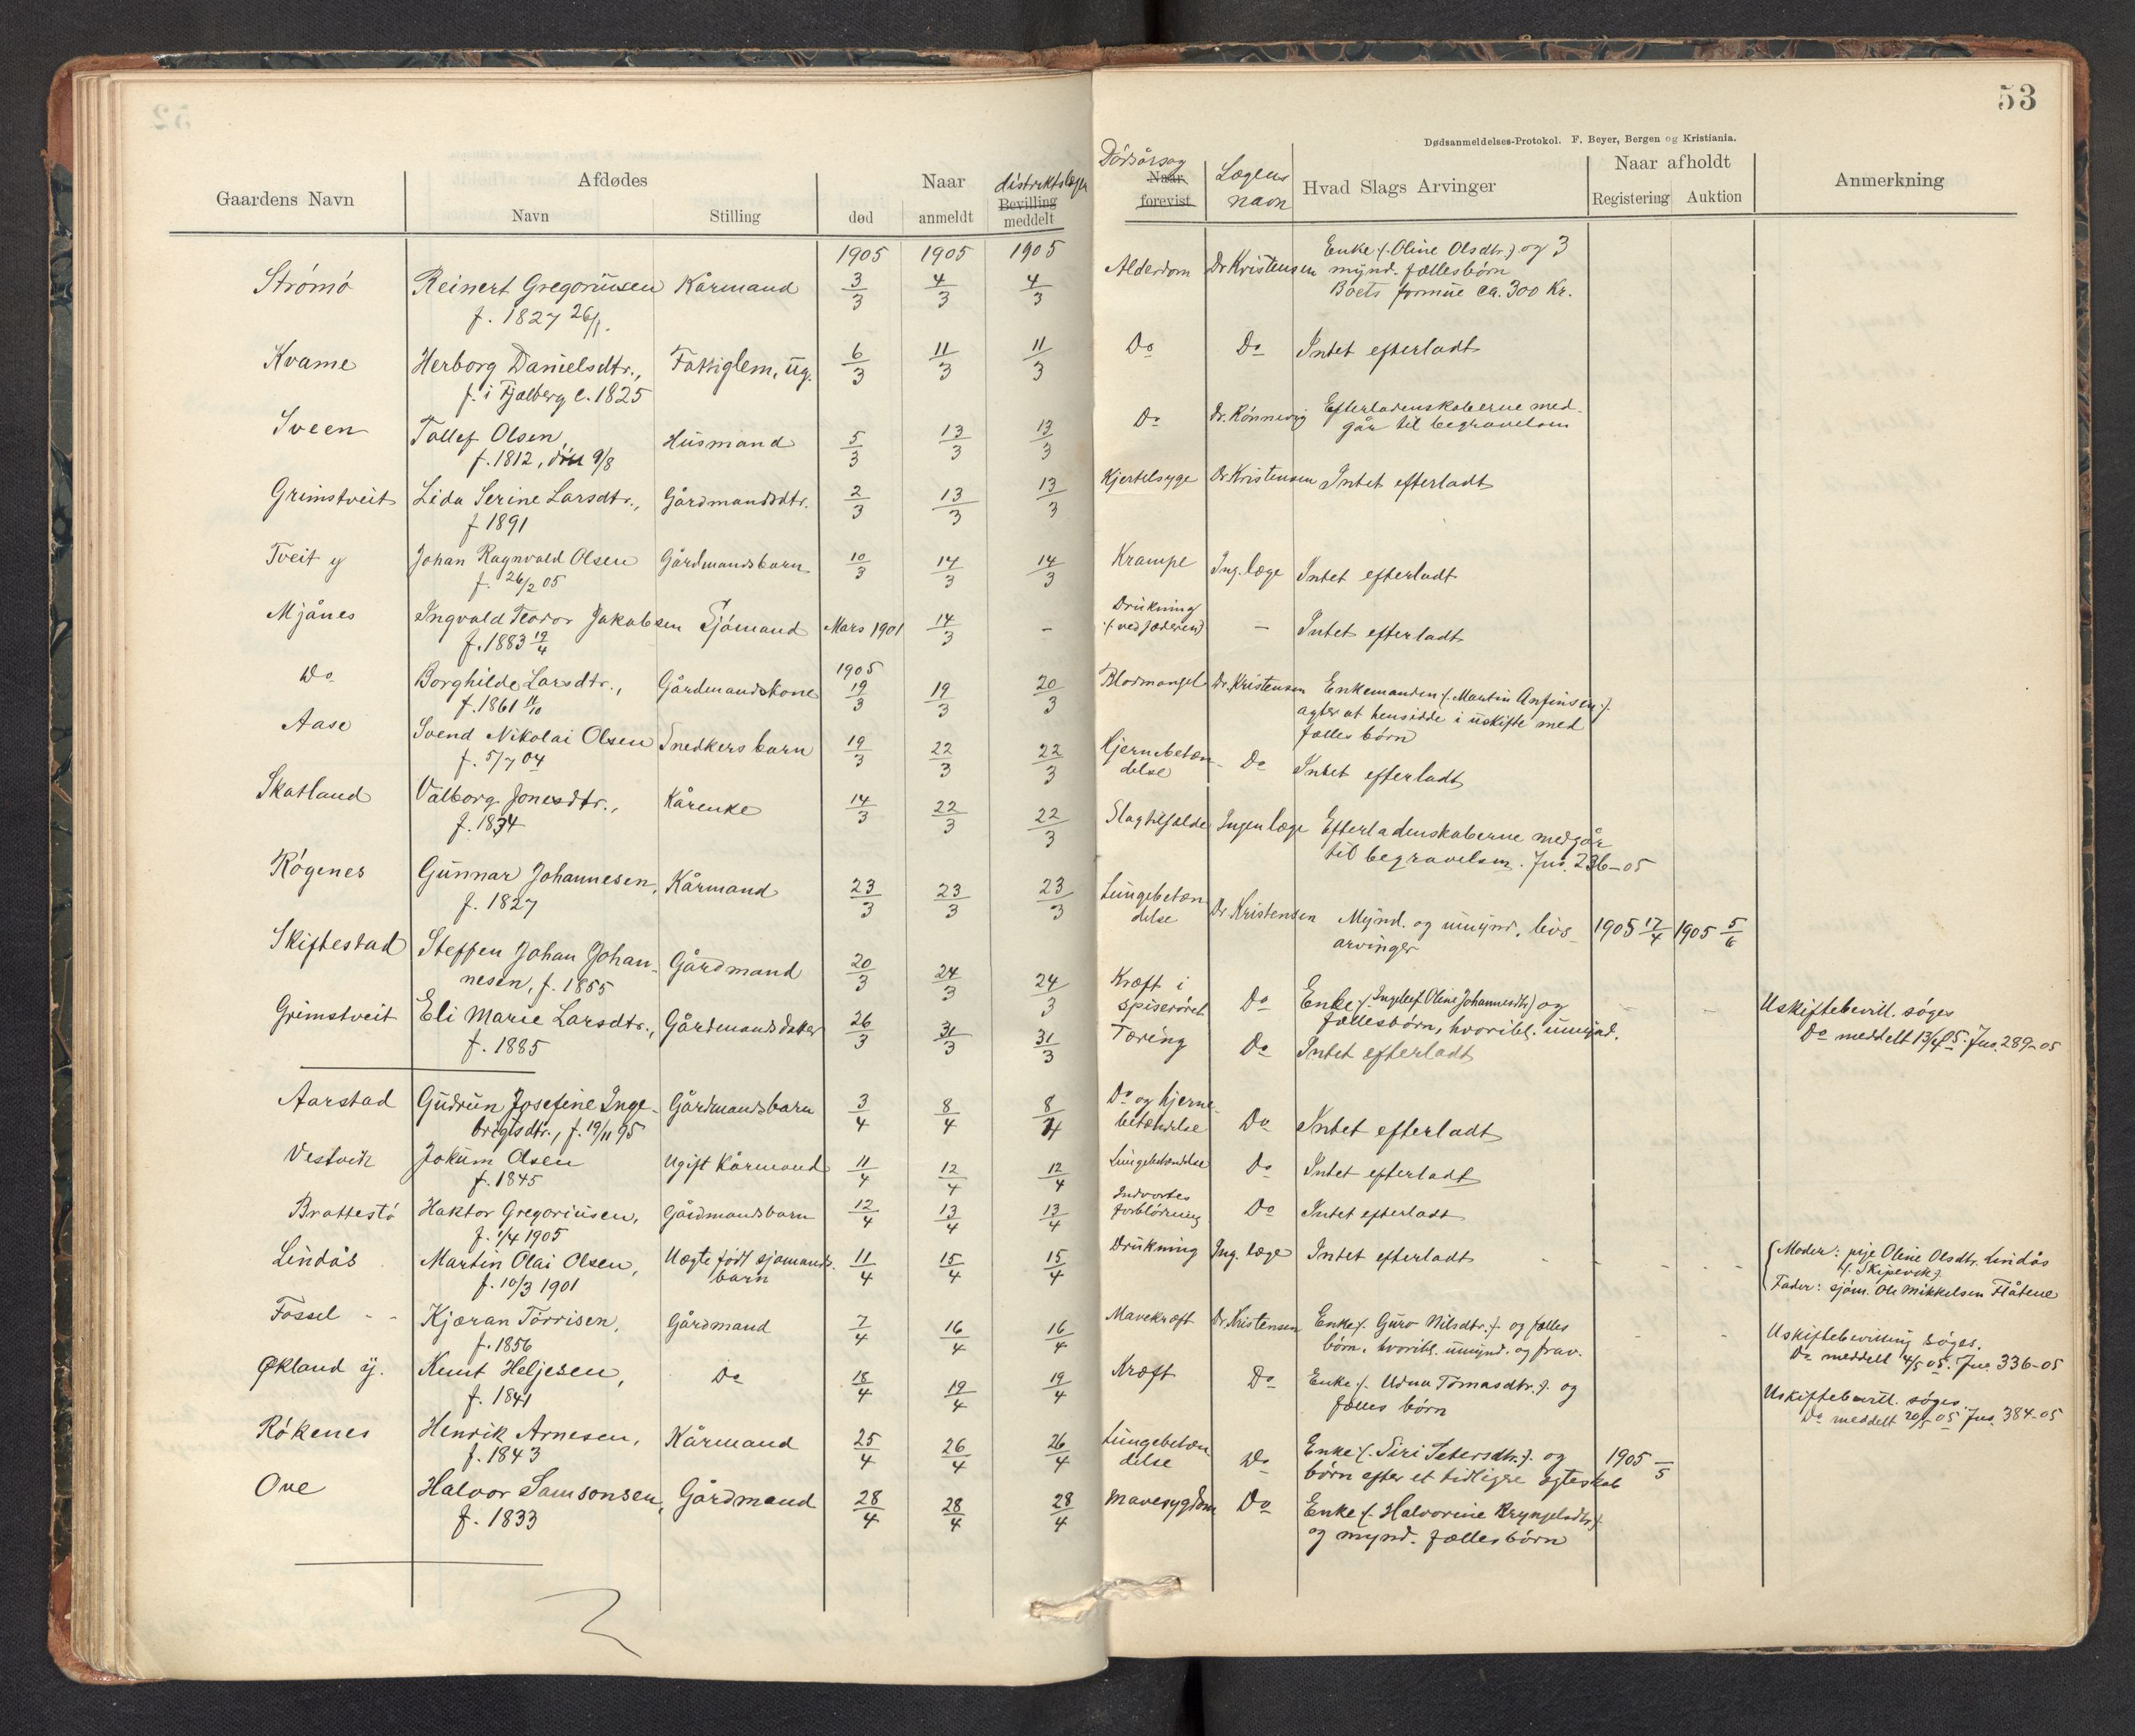 53
Dødsanmeldelses-Protokol. F. Beyer, Bergen og Kristiania.
Gaardens Navn
Afdødes
Navn
Stilling
Naar
død
anmeldt
distriktslægen
Bevilling
meddelt
Dödsårsag
Naar
forevist
Lægens
navn
Hvad Slags Arvinger
Naar afholdt
Registering
Auktion
Anmerkning
1905 1905 1905
Strømö Reinert Gregoriussen Kårmand 3/3 4/3 4/3 Alderdom Dr Kristensen Enke (Oline Olsdtr.) og 3
f. 1827 26/1. mynd. fællesbørn
Boets formue ca. 300 Kr.
Kvame Herborg Danielsdtr., Fattiglem, ug. 6/3 11/3 11/3 Do Do Intet efterladt
f. i Fjælberg c. 1825
Sveen Tollef Olsen, Husmand 5/3 13/3 13/3 Do Dr. Rönnevig Efterladenskaberne med-
f. 1812, den 9/8 går til begravelsen
Grimstveit Lida Serine Larsdtr., Gårdmandsdtr. 2/3 13/3 13/3 Kjertelsyge Dr Kristensen Intet efterladt
f 1891
Tveit y Johan Ragnvald Olsen Gårdmandsbarn 10/3 14/3 14/3 Krampe Ing. læge Intet efterladt
f. 26/2 05
Mjånes Ingvald Teodor Jakobsen Sjömand Mars 1901 14/3 - Drukning - Intet efterladt
f. 1883 19/4 (ved Jæderen)
1905
Do Borghilde Larsdtr., Gårdmandskone 19/3 19/3 20/3 Blodmangel Dr. Kristensen Enkemanden (Martin Anfinsen)
f. 1861 11/10 agter at hensidde i uskifte med
fælles börn
Aase Svend Nikolai Olsen Snedkers barn 19/3 22/3 22/3 Hjernebetæn- Do Intet efterladt
f. 5/7 04 delse
Skatland Valborg Jonesdtr., Kårenke 14/3 22/3 22/3 Slagtilfælde Ingen læge Efterladenskaberne medgår
f. 1834 til begravelsen. Jns. 236-05
Rögenes Gunnar Johannesen, Kårmand 23/3 23/3 23/3 Lungebetæn- Dr Kristensen Mynd. og umynd. livs- 1905 17/4 1905 5/6
f. 1827 delse arvinger
Skiftestad Steffen Johan Johan- Gårdmand 20/3 24/3 24/3 Kræft i Do Enke (Ingeleif Oline Johannesdtr) og - - Uskiftebevill. søges
nesen, f. 1855 spiserøret fællesbørn, hvoribl. umynd. Do meddelt 13/4 05. Jns. 289-05
Grimstveit Eli Marie Larsdtr., Gårdmandsdatter 26/3 31/3 31/3 Tæring Do Intet efterladt
f. 1885
Aarstad Gudrun Josefine Inge- Gårdmandsbarn 3/4 8/4 8/4 Do og hjerne- Do Intet efterladt
brigtsdtr., f. 19/11 95 betændelse
Vestvik Jokum Olsen Ugift Kårmand 11/4 12/4 12/4 Lungebetændelse Do Intet efterladt
f. 1845
Brattestö Haktor Gregoriusen, Gårdmandsbarn 12/4 13/4 13/4 Indvortes Do Intet efterladt
f. 1/4 1905 forblödning
Lindås Martin Olai Olsen, Uægte født sjömands- 11/4 15/4 15/4 Drukning Ing. læge Intet efterladt - - - Moder: pige Oline Olsdtr. Lindås
f. 10/3 1901 barn (Skipevik)
Fader: sjöm. Ole Mikkelsen Flåtene
Fossel - - Kjæran Törrisen, Gårdmand 7/4 16/4 16/4 Mavekræft Dr. Kristensen Enke (Guro Nilsdtr.) og fælles - - Uskiftebevilling söges.
f. 1856 börn, hvoribl. umynd. og frav. Do meddelt 4/5 05. Jns 336-05
Økland y. Knut Heljesen, Do 18/4 19/4 19/4 Kræft Do Enke (Udna Tomasdtr.) og Uskiftebevill. søges.
f. 1841 fælles börn Do meddelt 20/5 05 Jns. 384-05
Rökenes Henrik Arnesen, Kårmand 25/4 26/4 26/4 Lungebetæn- Do Enke (Siri Petersdtr.) og 1905 -/5
f. 1843 delse börn efter et tidligere ægteskab
Ove Halvor Samsonsen, Gårdmand 28/4 28/4 28/4 Mavesygdom Do Enke (Halvorine Brynjelsdtr)
f. 1833 og mynd. fællesbörn